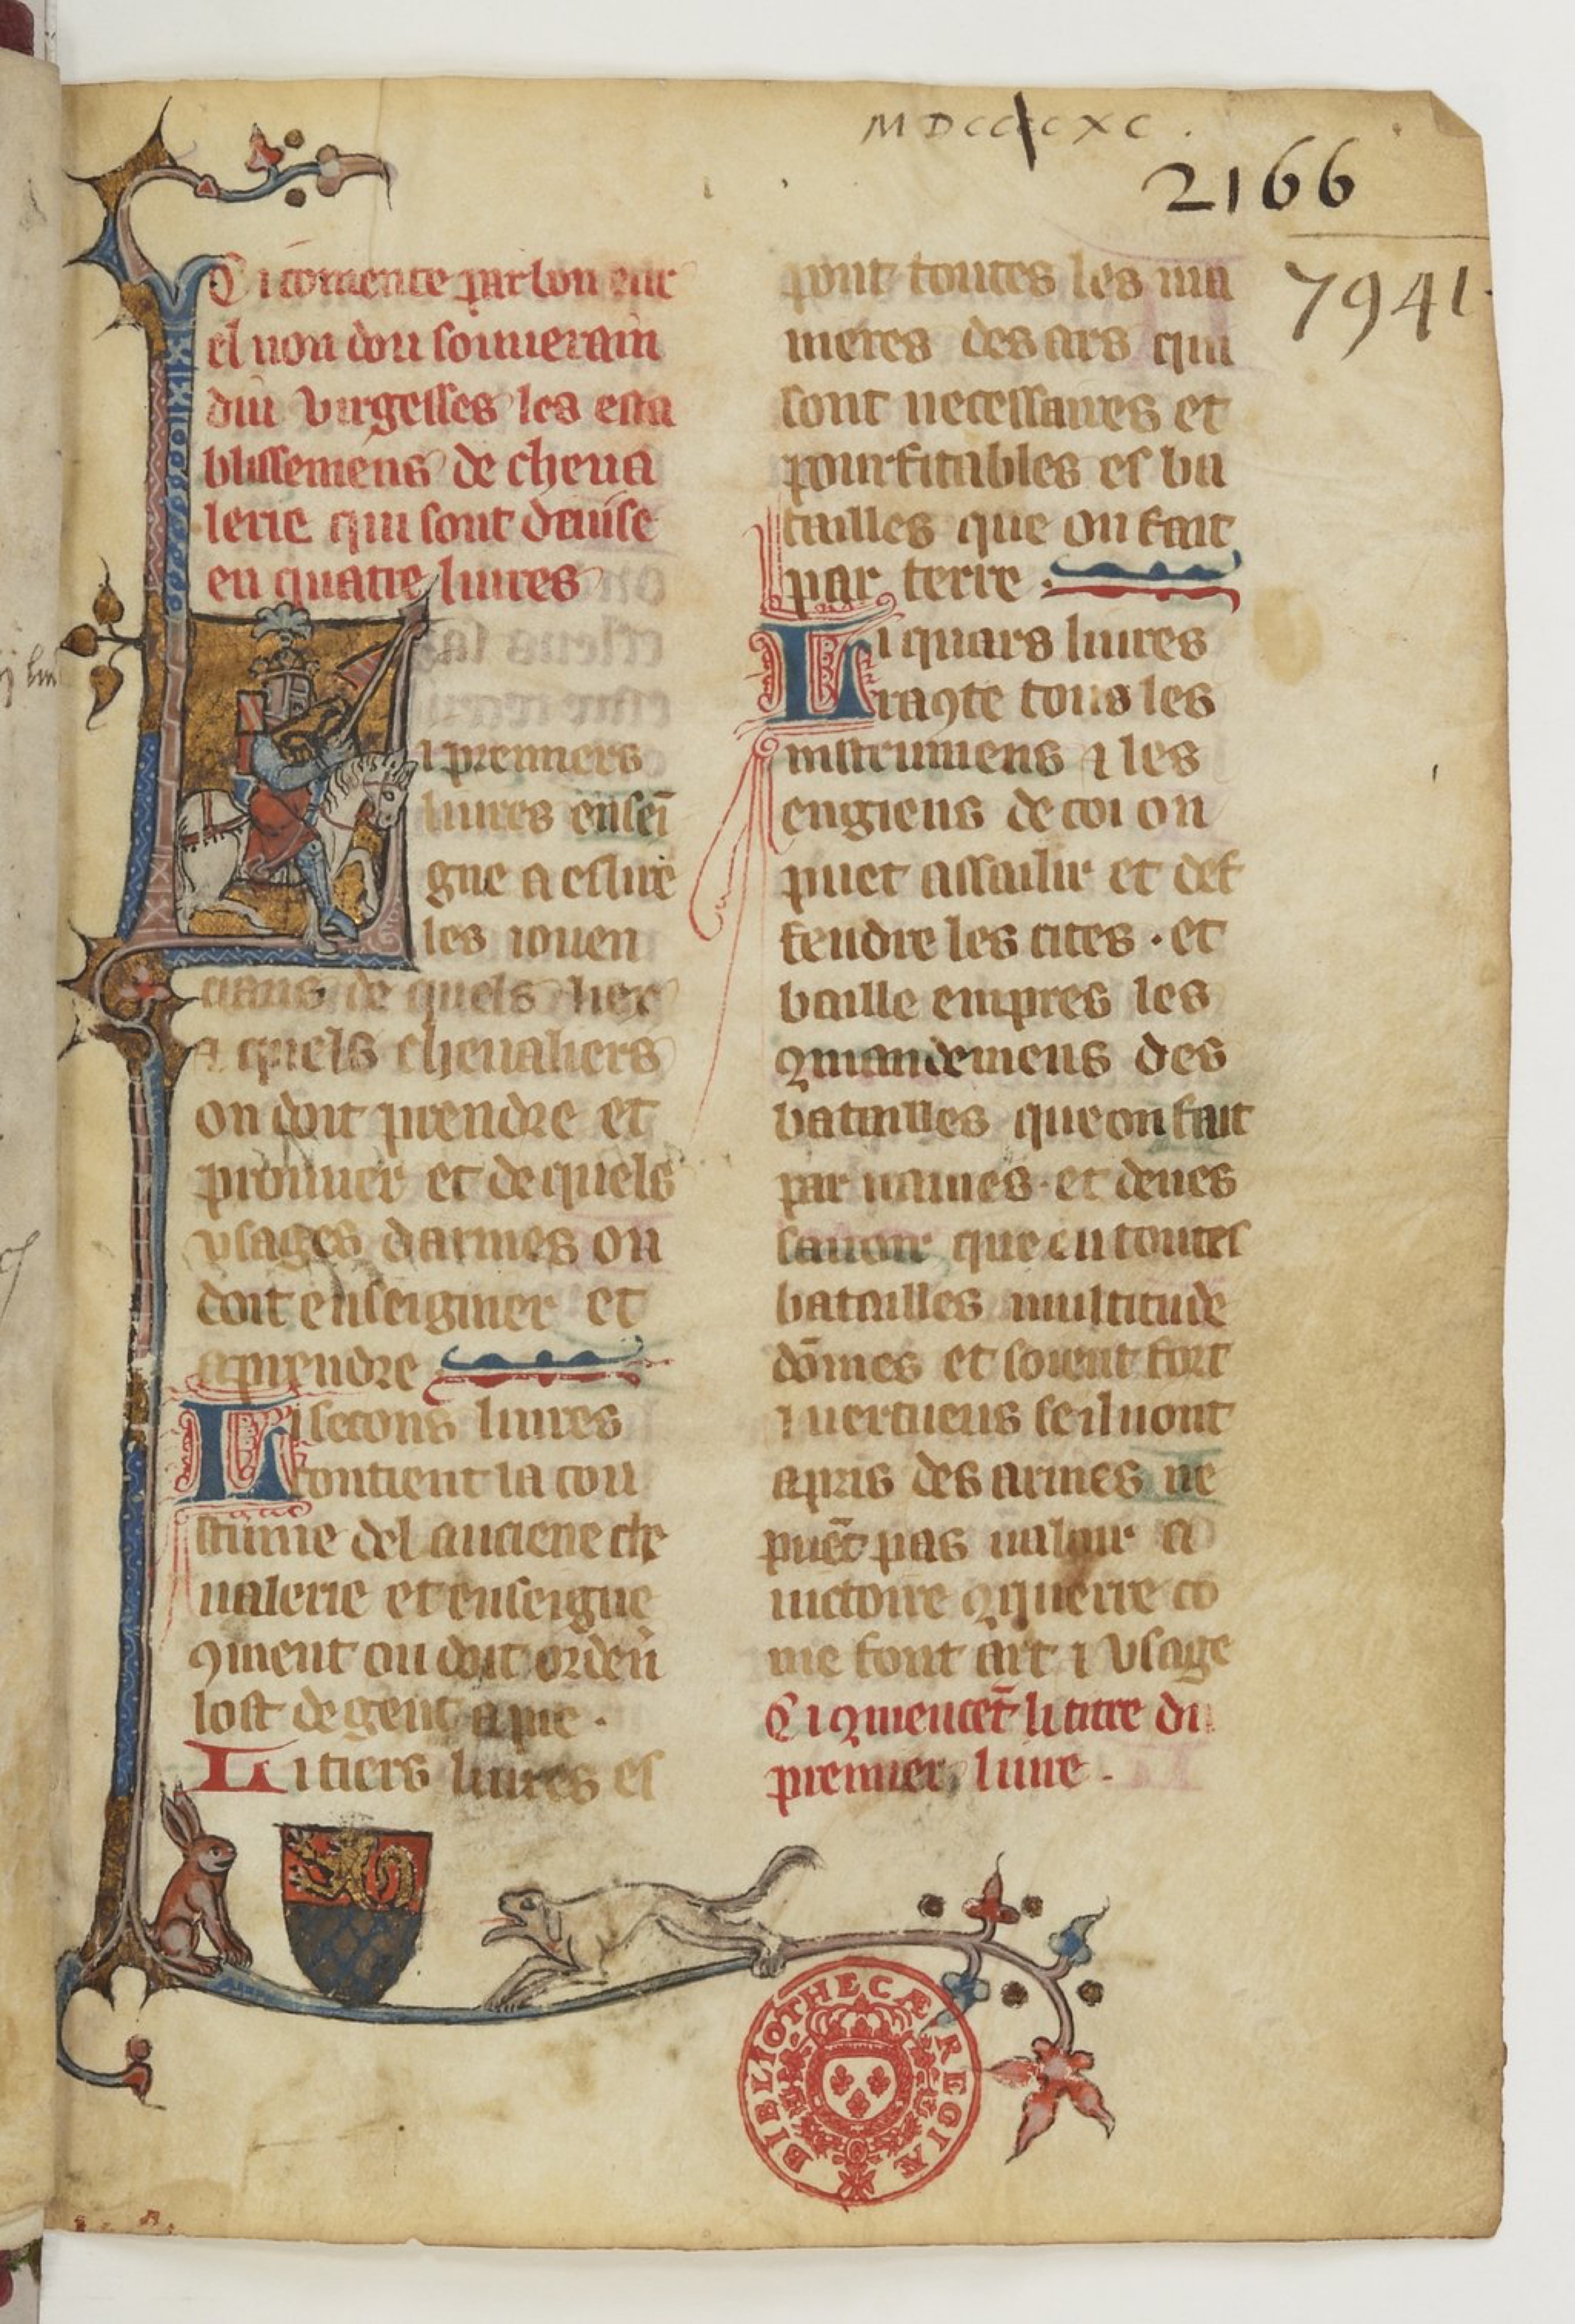 MDCCCCXC.
2166
7941.
Ci comence par bon eur
el non dou souuerain
diu virgesses les esta
blissemens de cheua
lerie qui sont deuise
en quatre liures
Li premiers
liures enseī
gne a eslire
les iouen
ciaus de quels lieu
⁊ quels cheualiers
on doit prendre et
prouuer et de quels
vsages darmes on
doit enseignier et
aprendre
Li secons liures
contient la cou
stume del anciene che
ualerie et enseigne
ꝯment on doit ordeñ
lost de gent a pie.
Li tiers liures es
pont toutes les ma
nieres des ars qui
sont necessaires et
pourfitables es ba
tailles que on fait
par terre.
Li quars liures
traꝯte tous les
instrumens ⁊ les
engiens de coi on
puet assailir et def
fendre les cites. et
baille empres les
ꝯmandemens des
batailles que on fait
par naues. et deues
sauoir que en toutes
batailles multitude
dōmes et soient fort
⁊ uertueus se il nont
apris des armes ne
puēt pas ualoir a
uictoire ꝯquerre co
me font art ⁊ vsage
Ci ꝯmencēt li titre du
premier liure.
BIBLIOTHECÆ REGIÆ